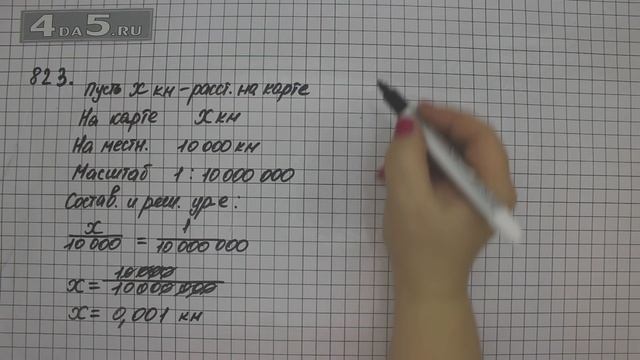 4DA5.RU
823. Пусть x км - расст. на карте
На карте x км
На местн. 10 000 км
Масштаб 1 : 10 000 000
Состав. и реш. ур-е :
x/10 000 = 1/10 000 000
x = 10 000/10 000 000
x = 0,001 км